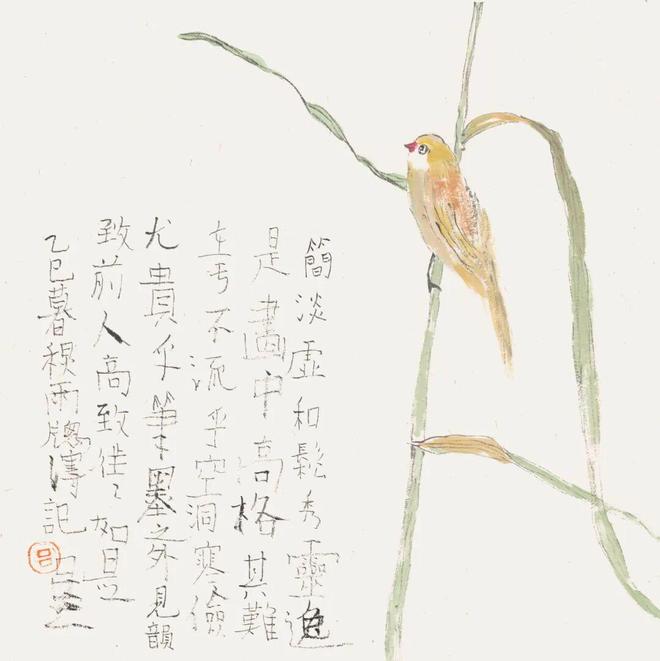 簡淡虛和鬆秀靈逸
是畫中高格其難
在乎不流乎空洞寒儉
尤貴乎筆墨之外見韻
致前人高致往〻如是
乙巳暮秋雨牕濤記